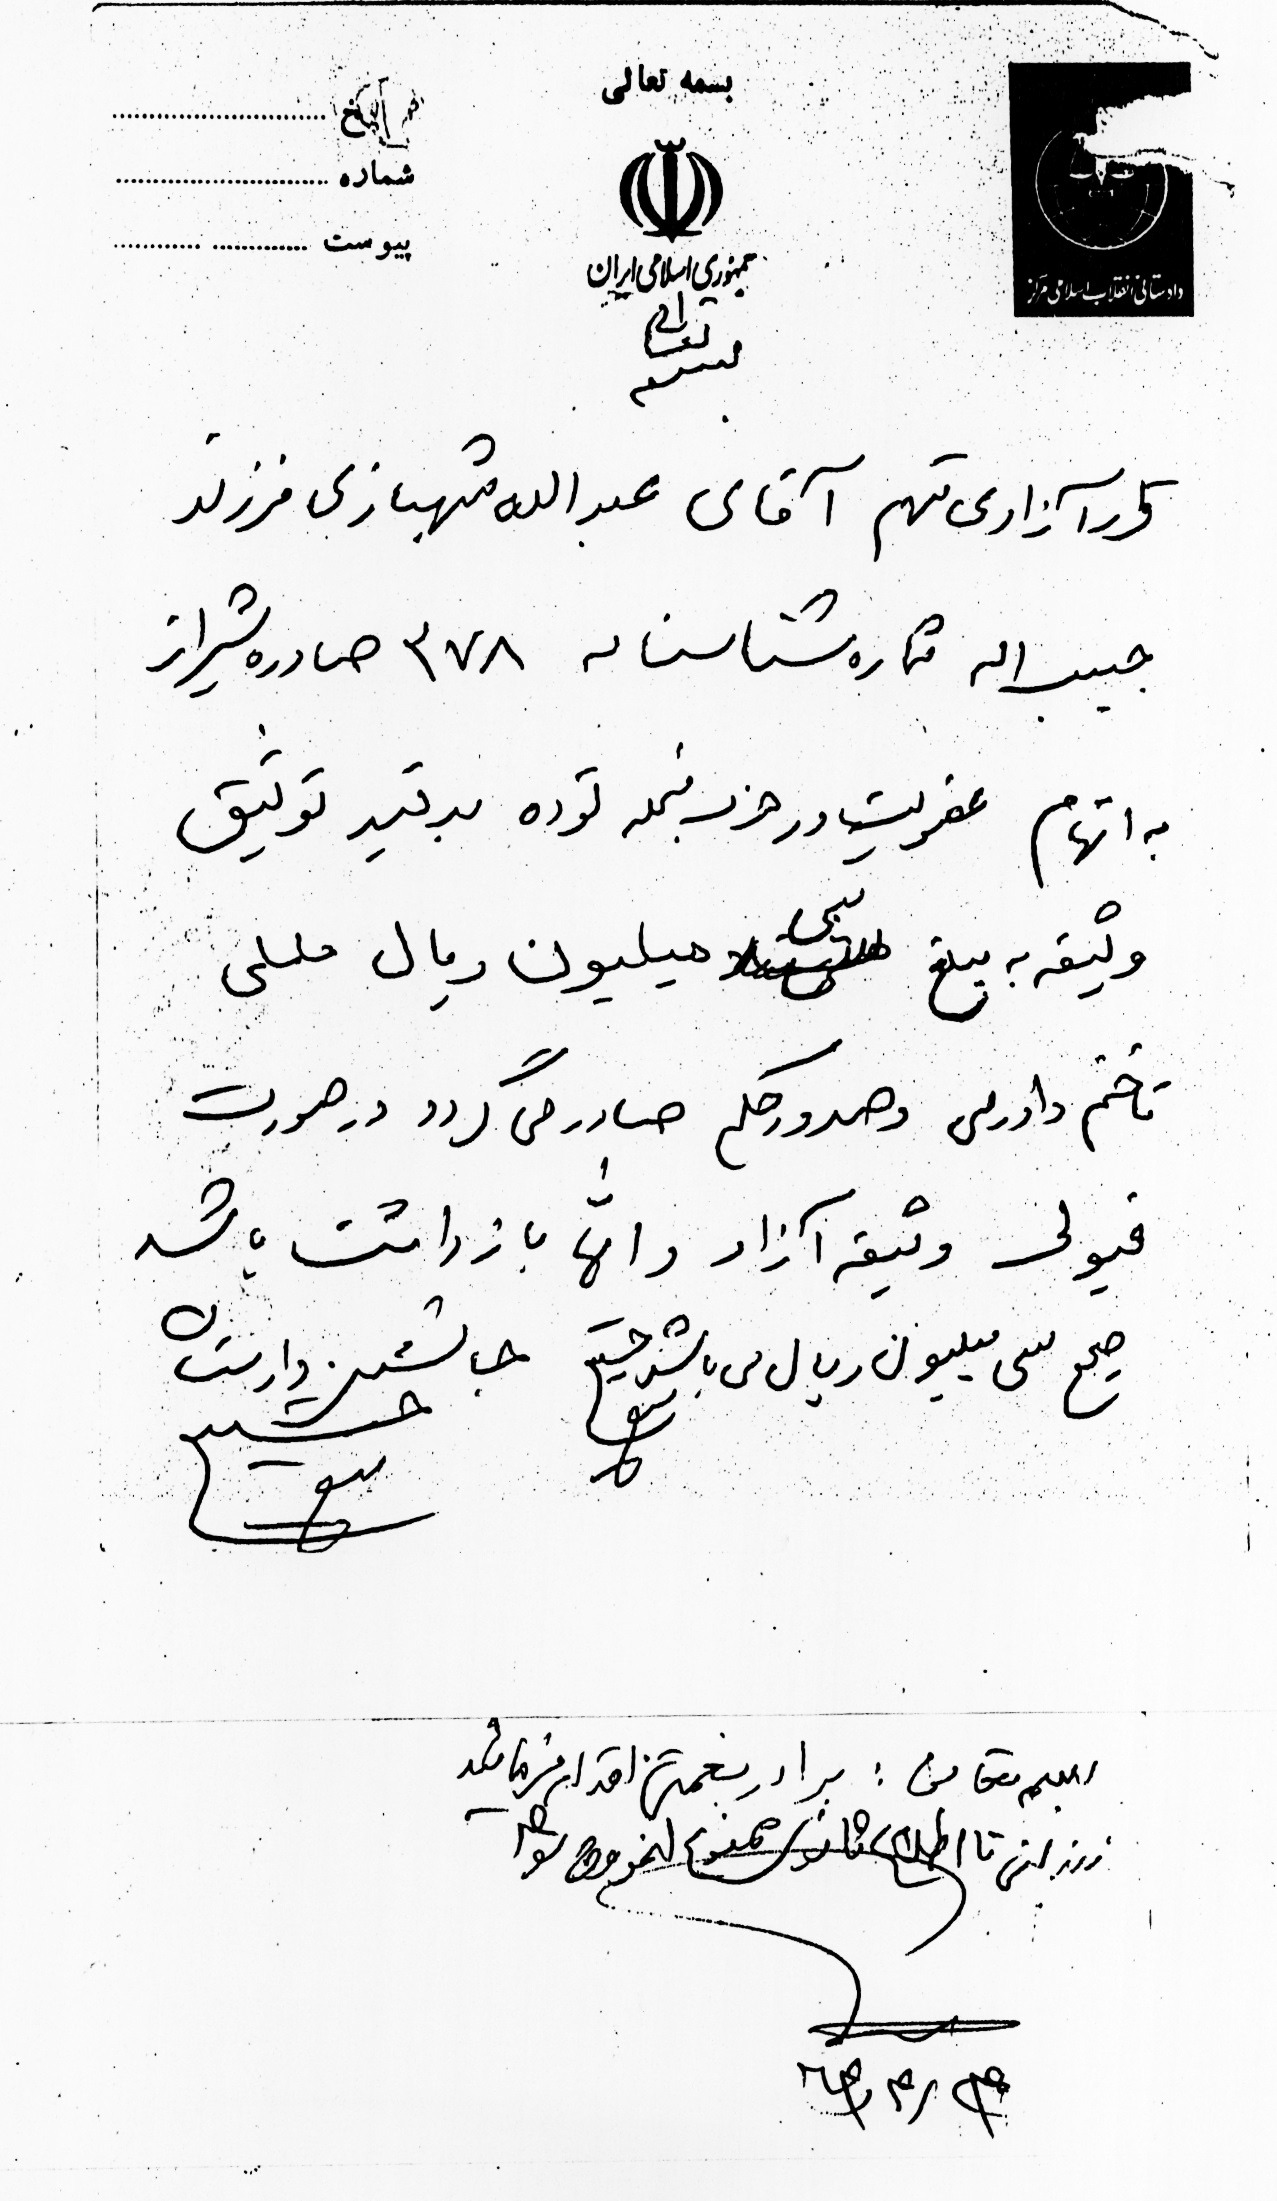 بسمه تعالی
تاریخ
شماره
پیوست
جمهوری اسلامی ایران
دادستانی انقلاب اسلامی مرکز
بسمه تعالی
قرار آزادی متهم آقای عبدالله شهبازی فرزند
حبیب اله شماره شناسنامه ۳۷۸ صادره شیراز
به اتهام عضویت در حزب منحله توده بدقید توثیق
وثیقه به مبلغ سی میلیون ریال ملکی
تا ختم دادرسی و صدور حکم صادر می گردد در صورت
قبولی وثیقه آزاد و الا بازداشت باشد
صحیح سی میلیون ریال می باشد
برادر اقدام فرمائید
تا اطلاع ثانوی ممنوع الخروج شود